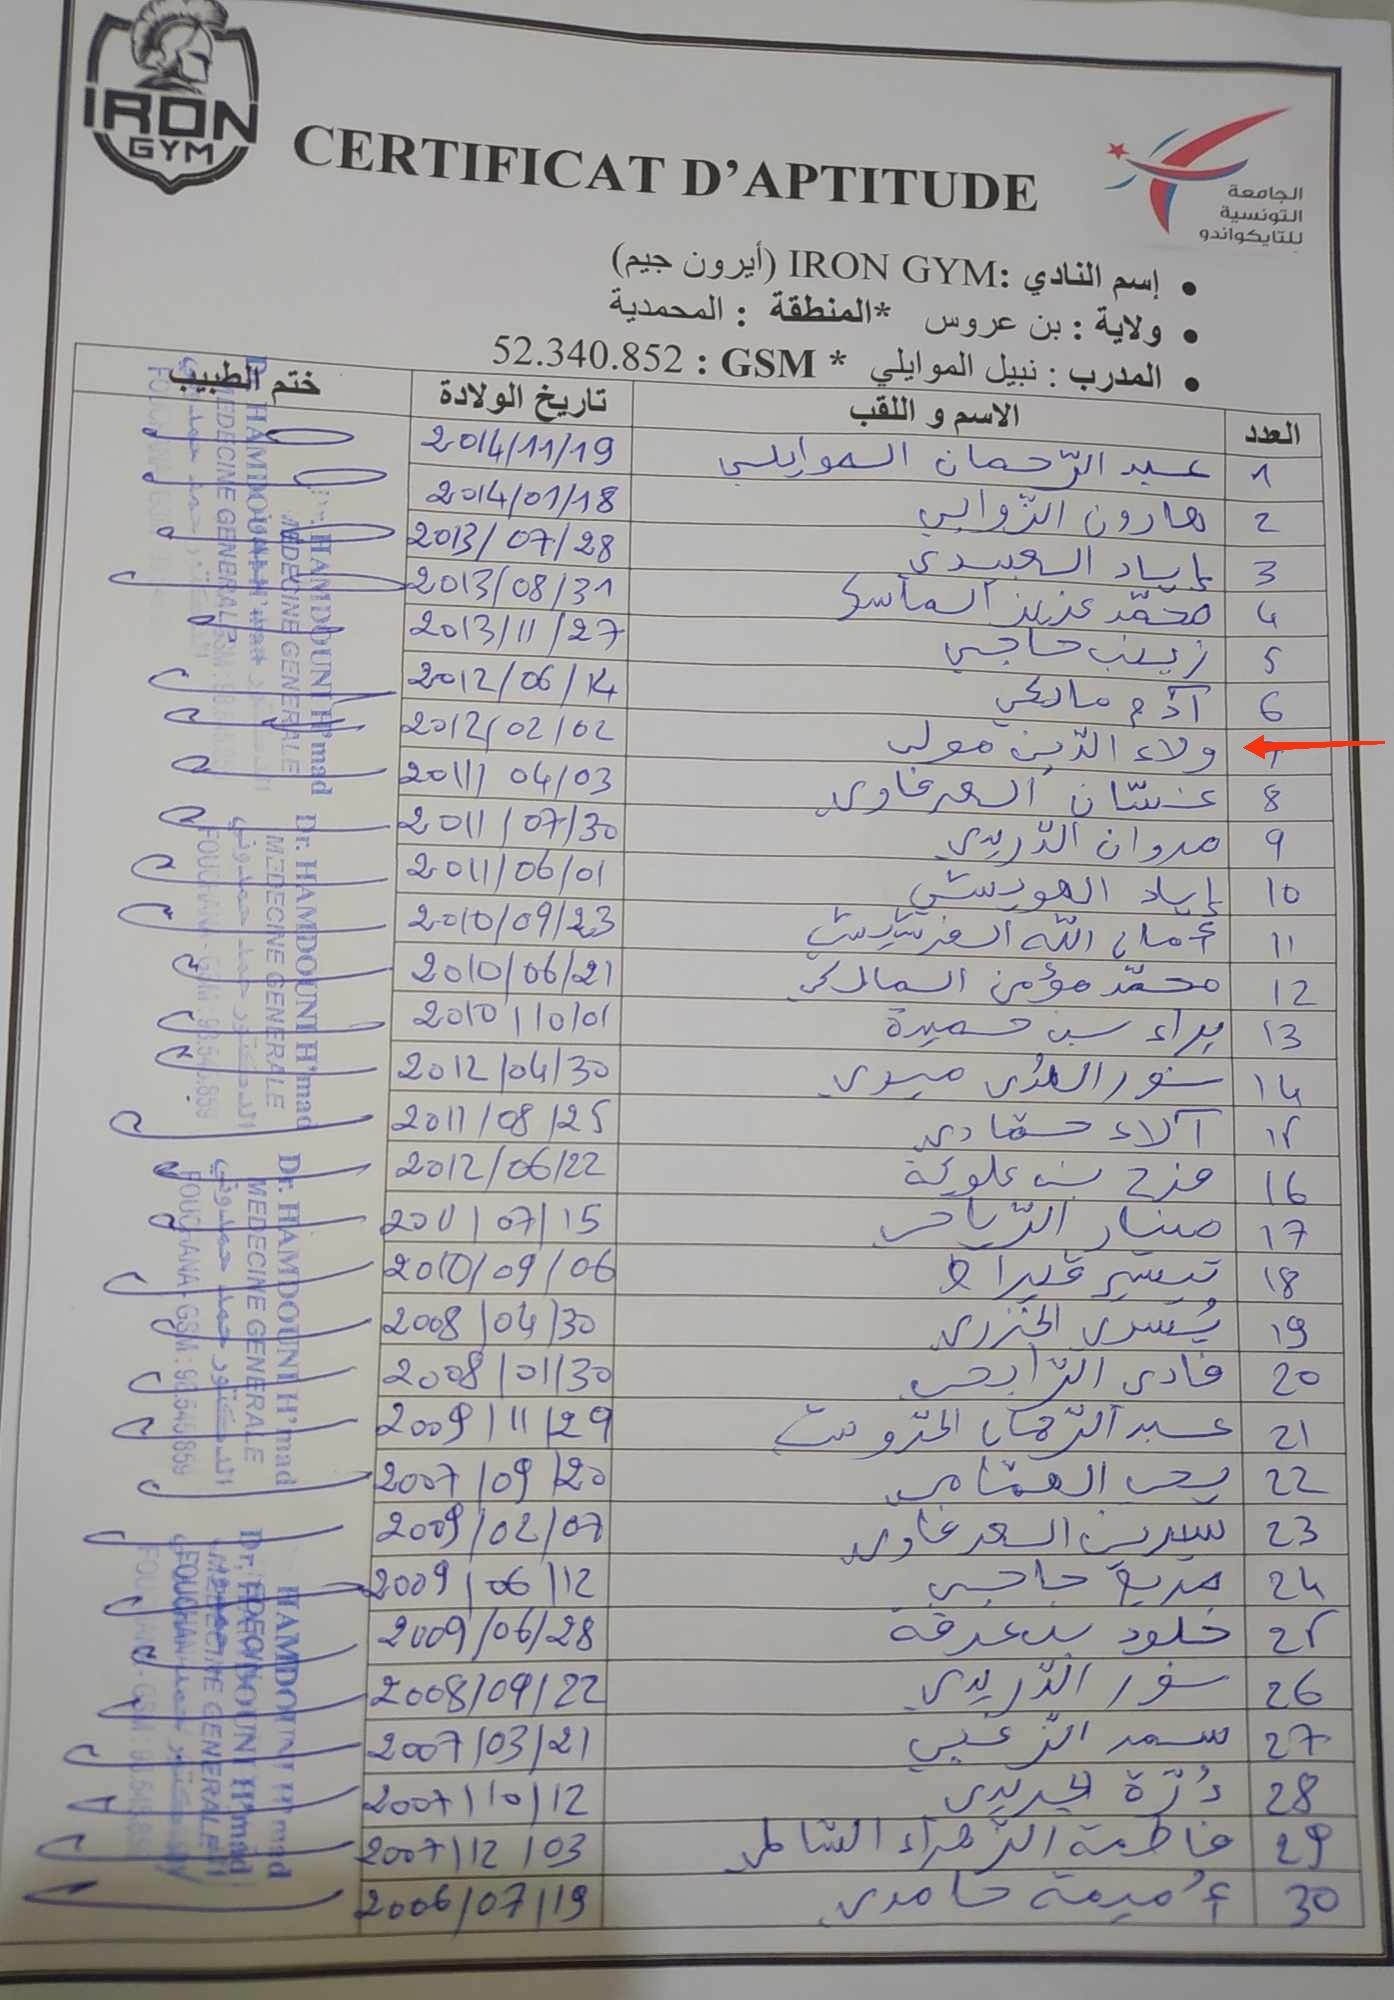 IRON
GYM
CERTIFICAT D'APTITUDE
الجامعة
التونسية
للتايكواندو
• إسم النادي :IRON GYM (أيرون جيم)
• ولاية : بن عروس *المنطقة : المحمدية
• المدرب : نبيل الموايلي * GSM : 52.340.852
العدد الاسم و اللقب تاريخ الولادة ختم الطبيب
1 عبد الرّحمان الموايلي 2014/11/19
2 هارون الزوابي 2014/01/18
3 إياد العبيدي 2013/07/28
4 محمّد عزيز الماسي 2013/08/31
5 زينب حاجي 2013/11/27
6 آدم مالكي 2012/06/14
7 ولاء الدّين مولى 2012/02/02
8 غسّان السعرغاوي 2011/04/03
9 مروان الدّريدي 2011/07/30
10 إياد الهويشي 2011/06/01
11 أمان الله الفرشيشي 2010/09/23
12 محمّد مؤمن المالكي 2010/06/21
13 براء بن حميدة 2010/10/01
14 نور الهدى ميري 2012/04/30
15 آلاء حمّادي 2011/08/25
16 فرح بن علوية 2012/06/22
17 منار الرّياحي 2011/07/15
18 تيسير قيراط 2010/09/06
19 يُسرى الخزري 2008/04/30
20 فادي الرّابحي 2008/01/30
21 عبد الرّحمان 2009/11/29
22 يحي الهمّامي 2007/09/20
23 سيرين السعرغاوي 2009/02/07
24 مريم حاجي 2009/06/12
25 خلود بن عرفة 2009/06/28
26 نور الدّريدي 2008/09/22
27 سمر الزغبي 2007/03/21
28 دُرّة الجريدي 2007/10/12
29 فاطمة الزّهراء الشّاملي 2007/12/03
30 أُميمة حامدي 2006/07/19
Dr. HAMDOUNI H'mad
MEDECINE GENERALE
الدكتور حمد حمدوني
FOUCHANA - GSM : 98.545.859
Dr. HAMDOUNI H'mad
MEDECINE GENERALE
الدكتور حمد حمدوني
FOUCHANA - GSM : 98.545.859